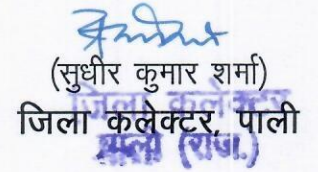 (सुधीर कुमार शर्मा)
जिला कलेक्टर
जिला कलेक्टर, पाली
(राज.)